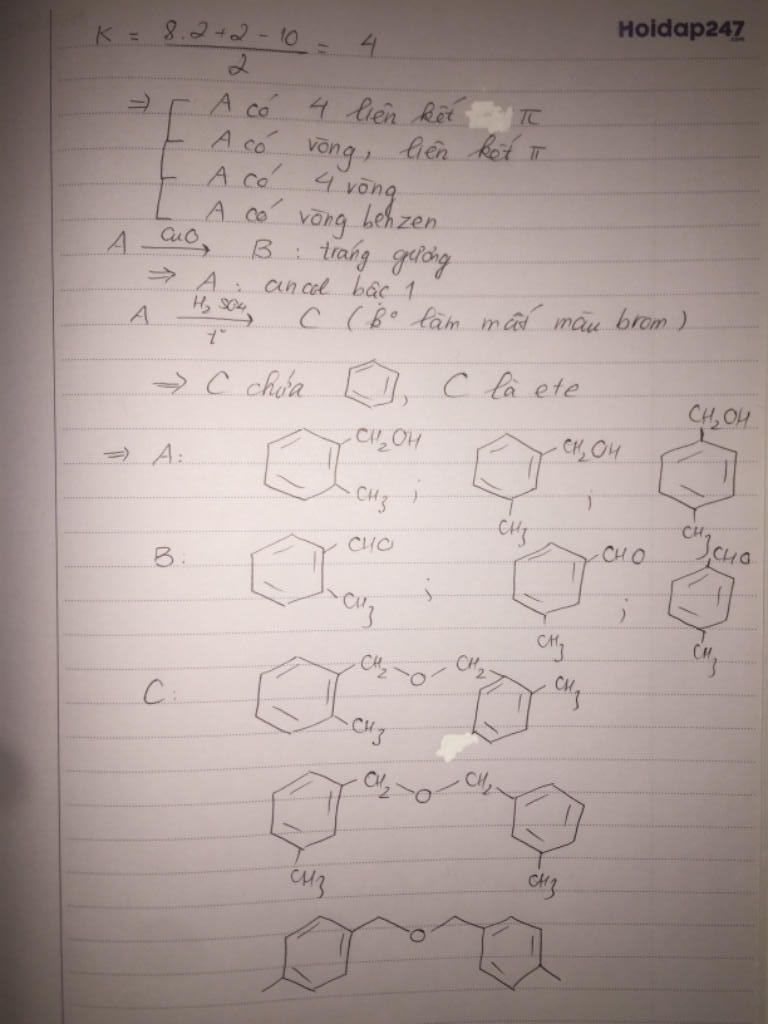 Hoidap247
.com
K = 8.2+2-10 / 2 = 4
⇒ A có 4 liên kết π
A có vòng, liên kết π
A có 4 vòng
A có vòng benzen
A CuO → B : tráng gương
⇒ A : ancol bậc 1
A H2SO4 → t° C ( B° làm mất màu brom )
⇒ C chứa , C là ete
⇒ A: CH2OH CH3 ; CH2OH CH3 ; CH2OH CH3
B: CHO CH3 ; CHO CH3 ; CHO CH3
C: CH2 O CH2 CH3 CH3
CH2 O CH2 CH3 CH3
O